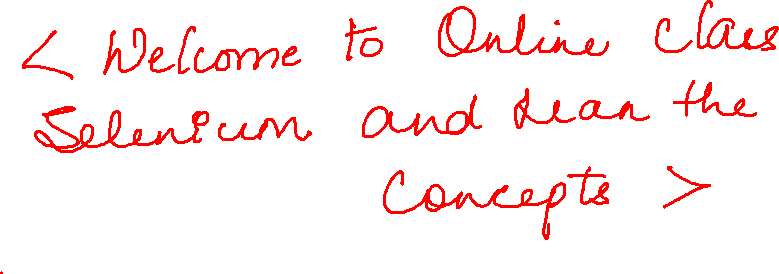 < Welcome to Online class
Selenium and Lean the
Concepts >